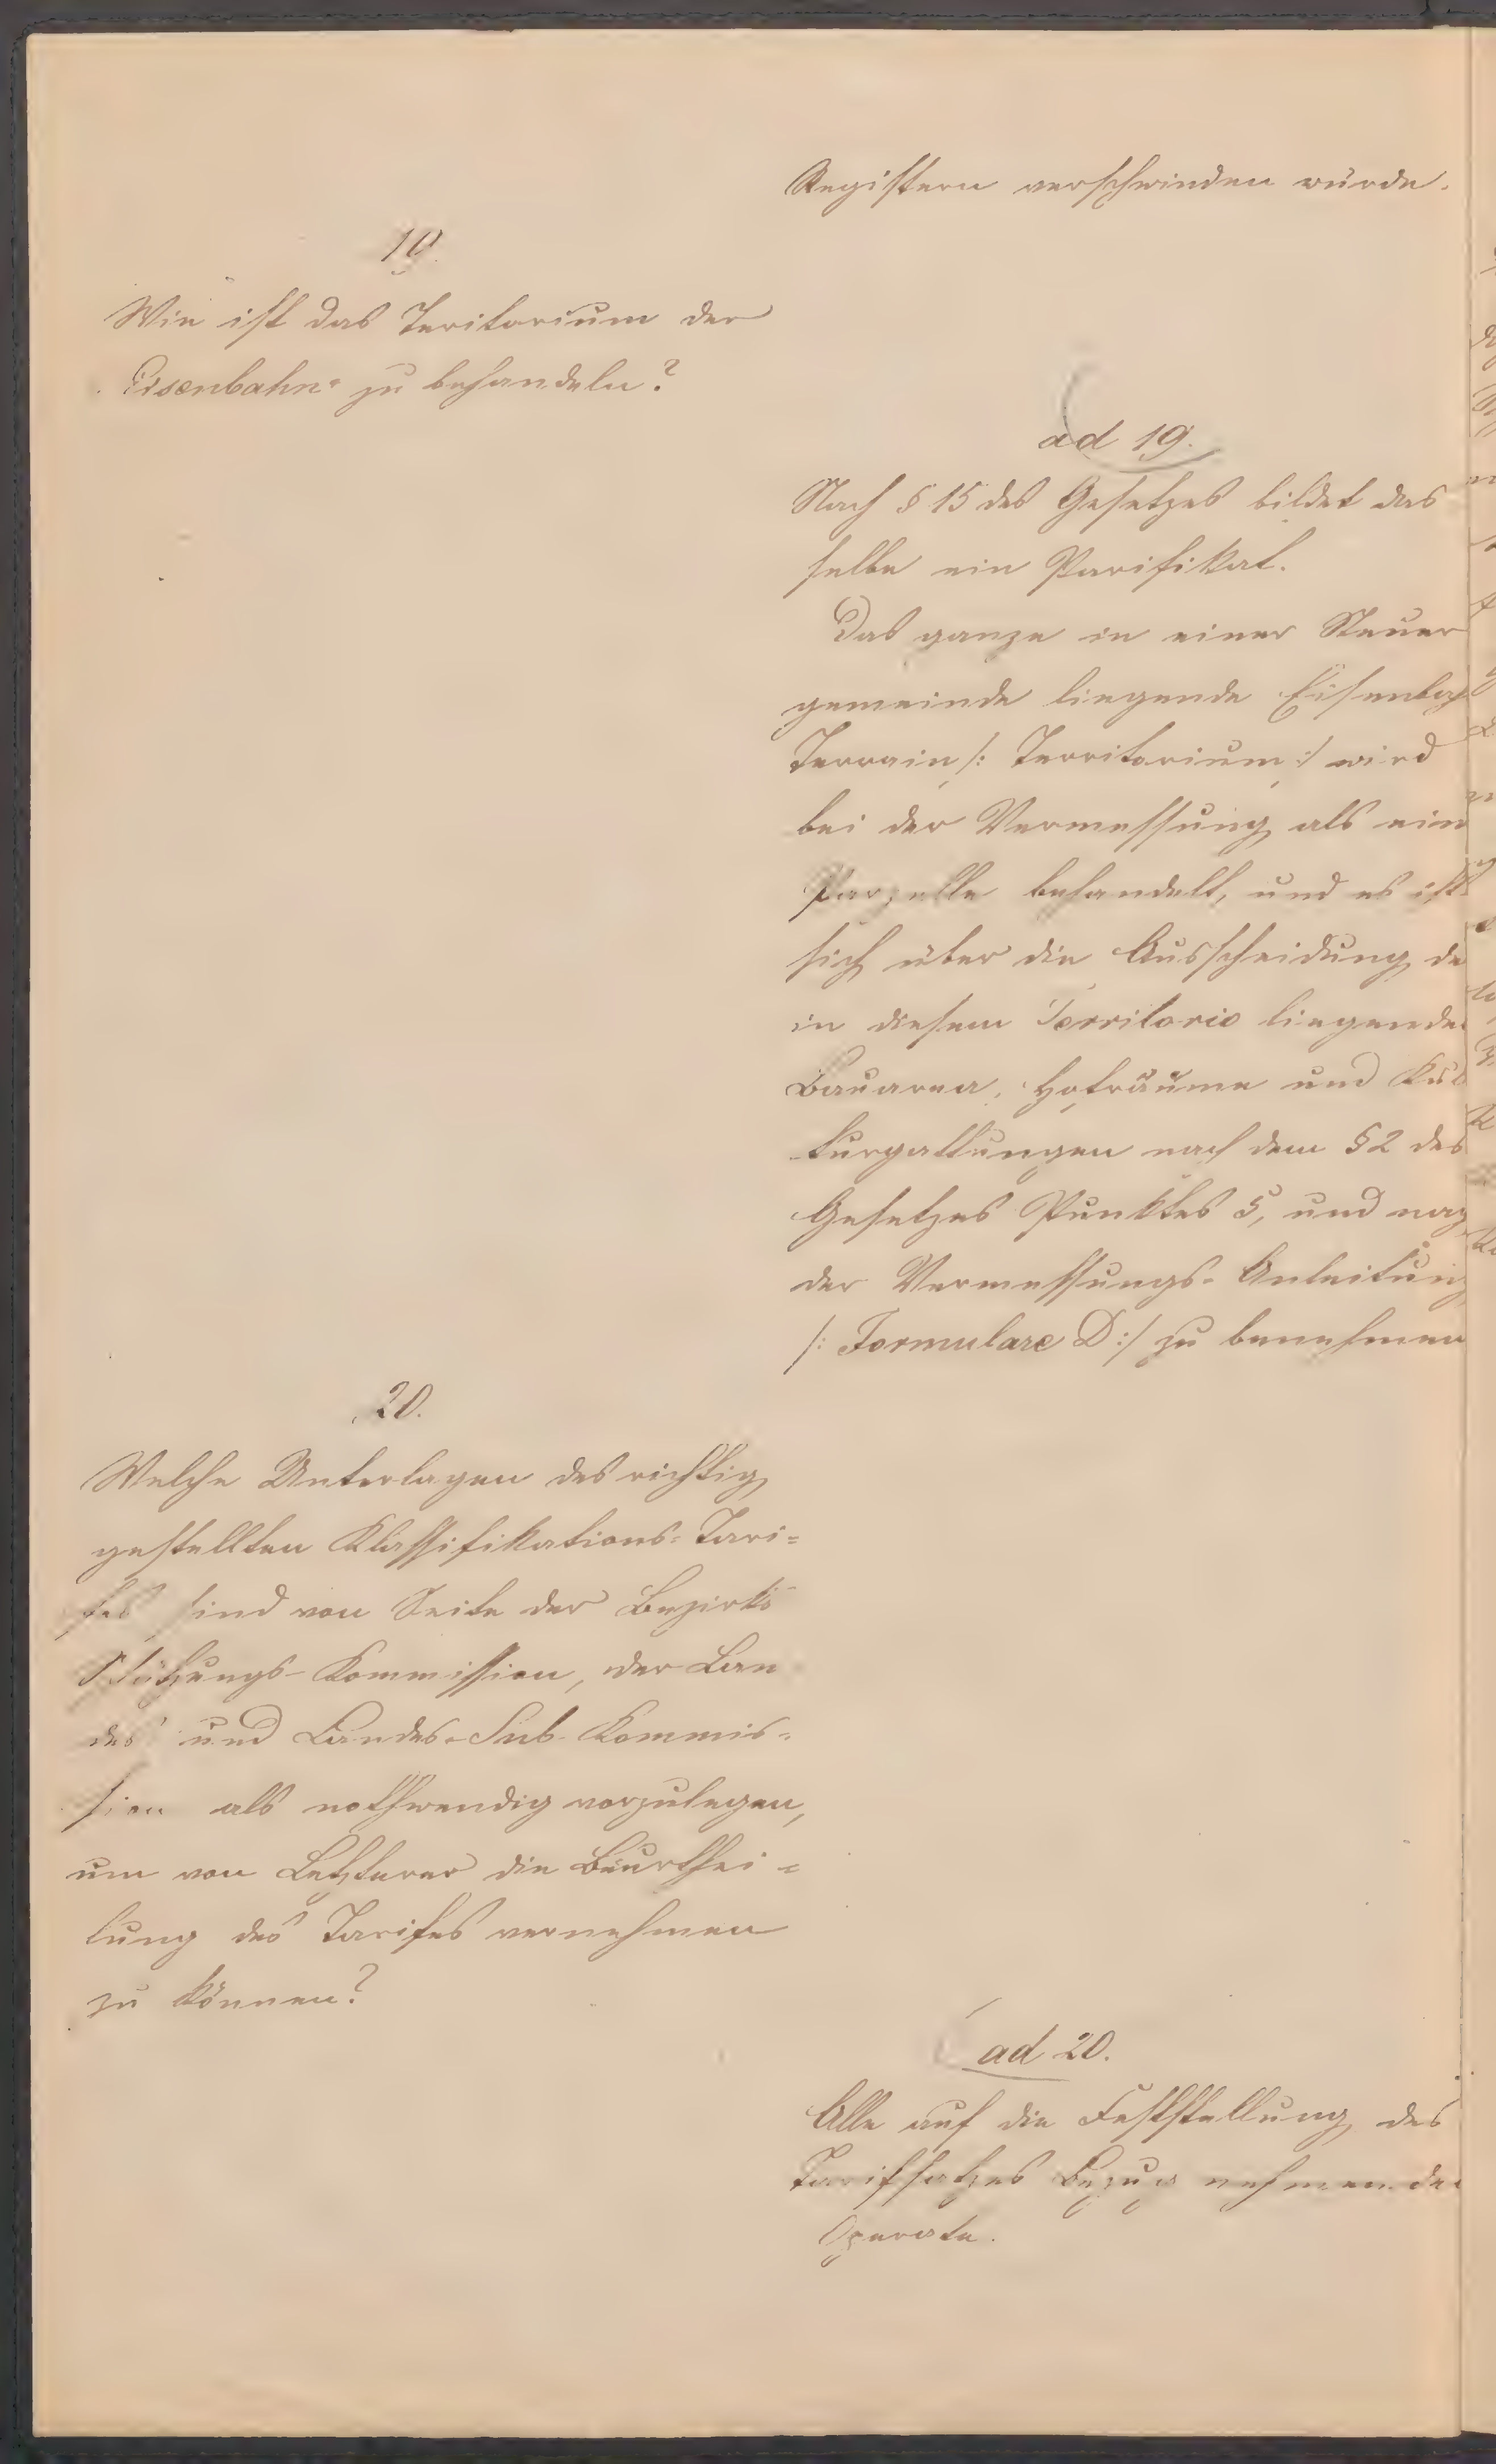 Registern verschwinden würde.
19.
Wie ist das Teritorium der
Eisenbahn zu behandeln?
ad 19.
Nach § 15 des Gesetzes bildet das
selbe ein Parifikat.
Das ganze in einer Steuer
gemeinde liegende Eisenbah
Terrain /: Territorium :/ wird
bei der Vermessung als eine
Parzelle behandelt, und es ist
sich über die Ausscheidung de
in diesem Territorio liegenden
Bauarea, Hofräume und Kul
turgattungen nach dem § 2 des
Gesetzes Punktes 5, und nach
der Vermessungs-Anleitung
/: Formulare D :/ zu benehmen
20.
Welche Unterlagen des richtig
gestellten Klassifikations-Tari=
fes sind von Seite der Bezirks
Schätzungs-Kommission, der Lan
des und Landes-Sub-Kommis=
sion als nothwendig vorzulegen,
um von Letzterer die Beurthei=
lung des Tarifes vernehmen
zu können?
ad 20.
Alle auf die Feststellung des
Tarifsatzes Bezug nehmenden
Operate.